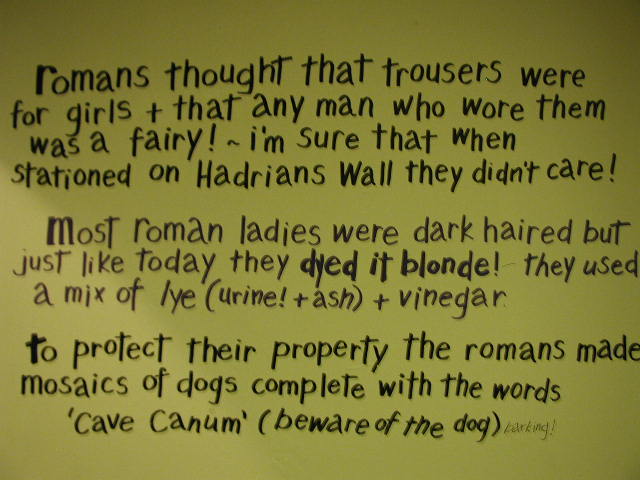 romans thought that trousers were
for girls + that any man who wore them
was a fairy! ~ i'm sure that when
stationed on Hadrians Wall they didn't care!
most roman ladies were dark haired but
just like today they dyed it blonde! they used
a mix of lye (urine! + ash) + vinegar
to protect their property the romans made
mosaics of dogs complete with the words
'Cave Canum' (beware of the dog) barking!